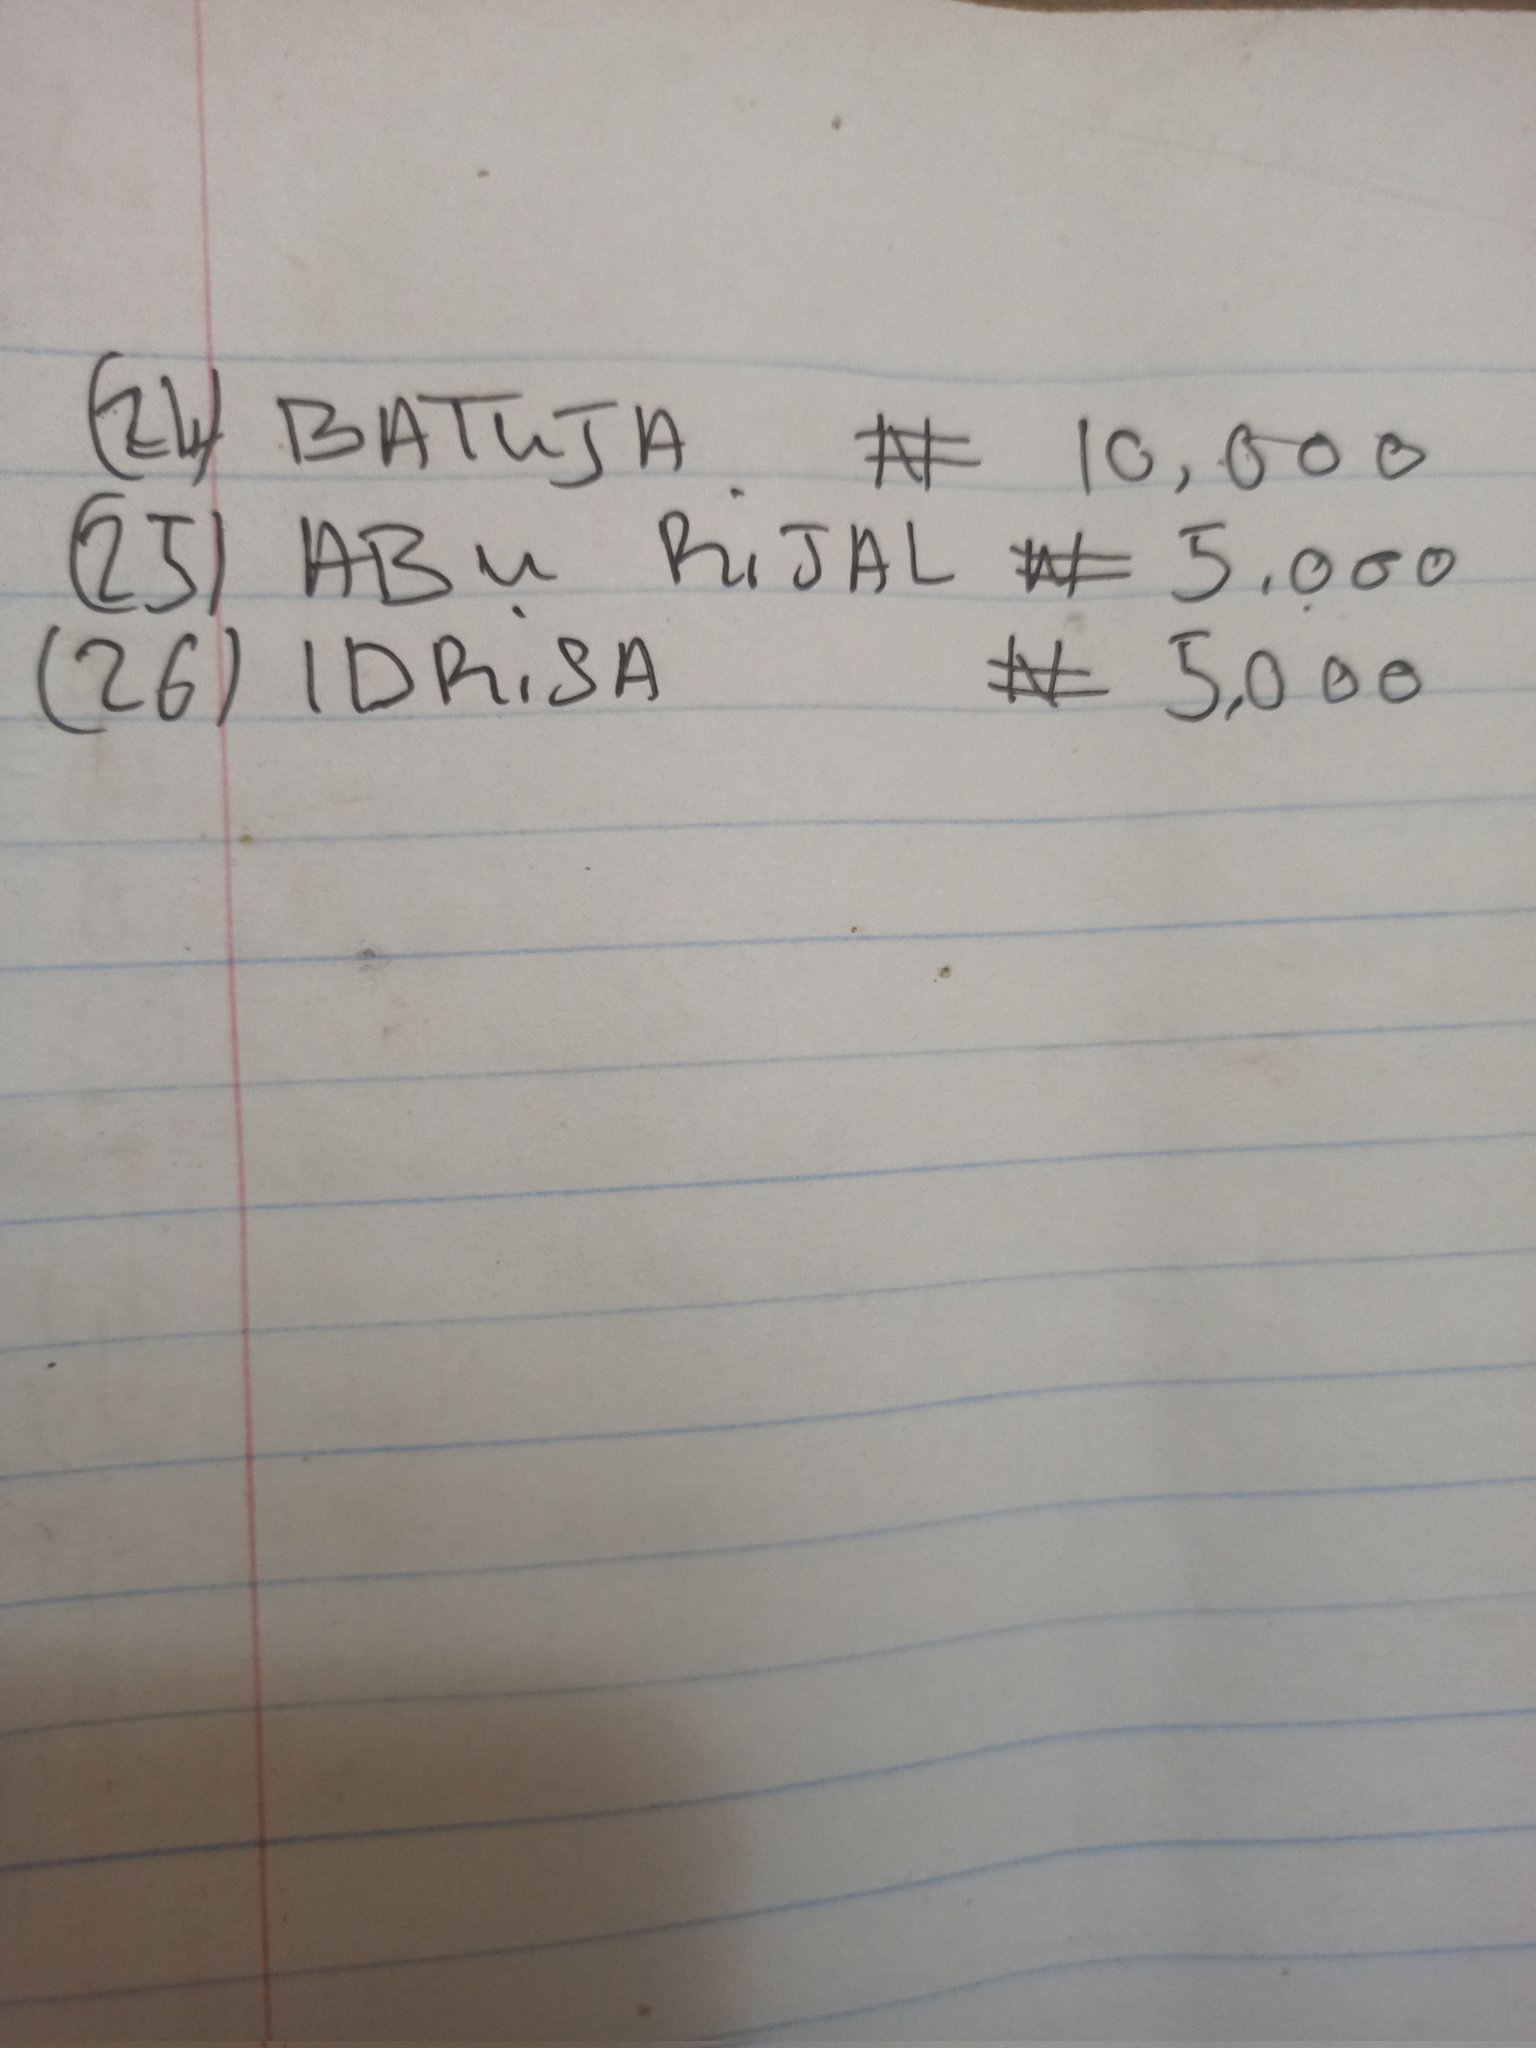 (24) BATUJA ₦ 10,000
(25) ABU RIJAL ₦ 5,000
(26) IDRISA ₦ 5,000